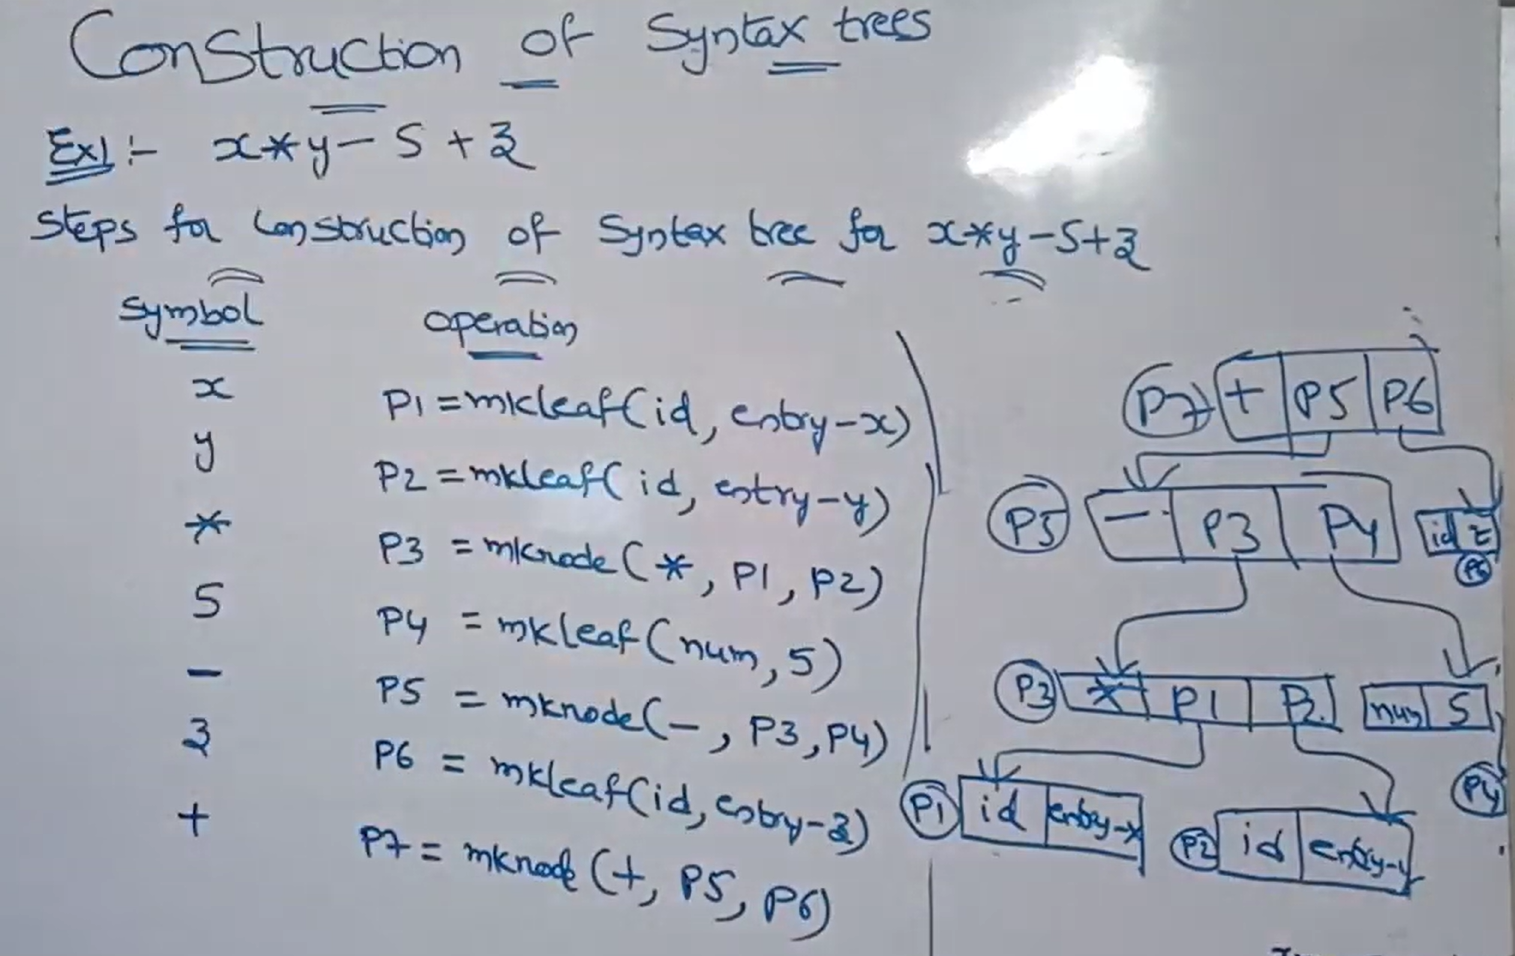 Construction of Syntax trees
Ex1:- x*y-5+z
Steps for Construction of Syntax tree for x*y-5+z
Symbol operation
x P1=mkleaf(id, entry-x)
y P2=mkleaf(id, entry-y)
* P3 = mknode(*, P1, P2)
5 P4 = mkleaf(num, 5)
- P5 = mknode(-, P3, P4)
z P6 = mkleaf(id, entry-z)
+ P7= mknode(+, P5, P6)
P7 + P5 P6
P5 - P3 P4 id z
P6
P3 * P1 P2 num 5
P4
P1 id entry-x
P2 id entry-y